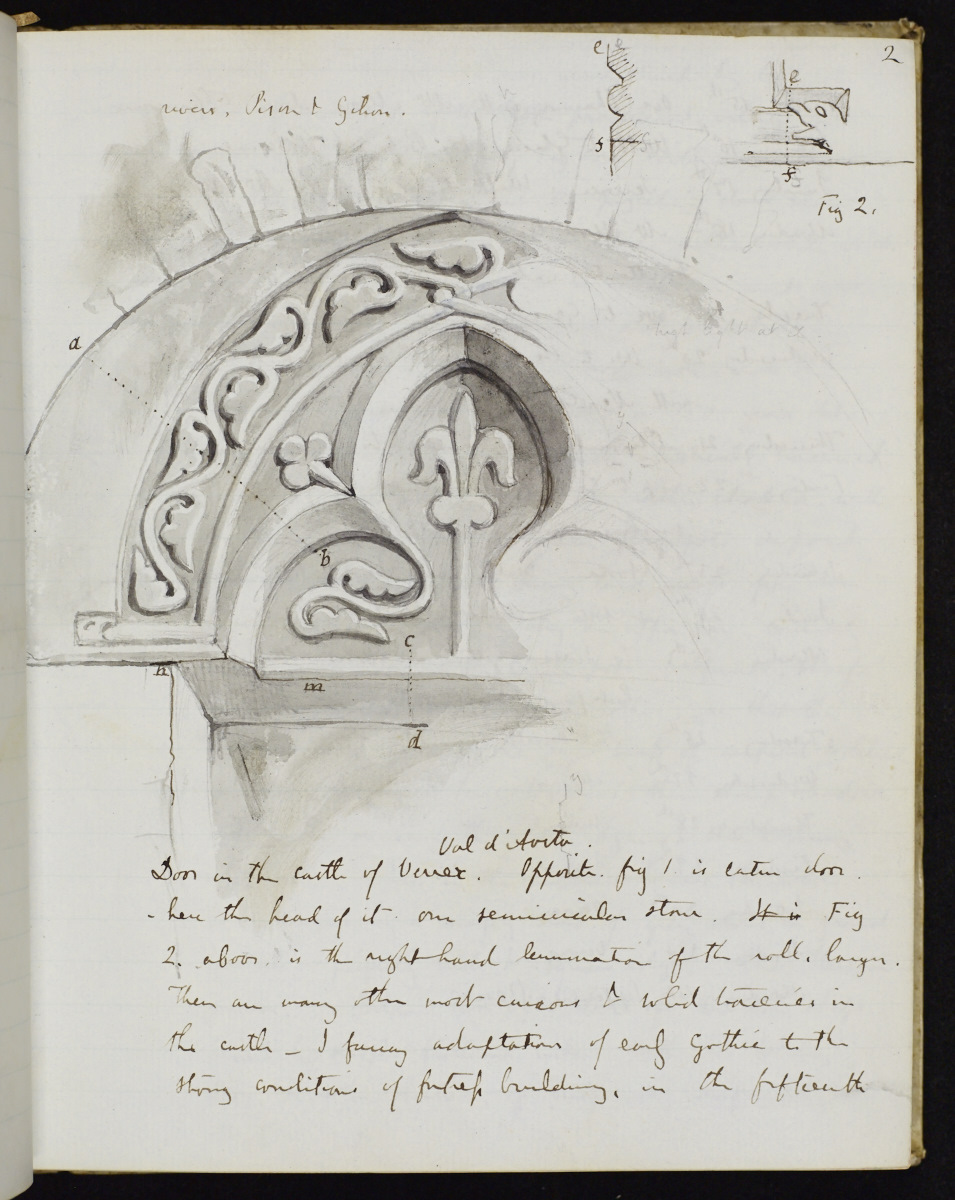 2
e
s
e
f
Fig 2.
rivers, Pison & Gihon.
a
high light at
b
c
n
m
d
Val d'Aosta.
Door in the castle of Verrex. Opposite. fig 1. is entire door.
- here the head of it. one semicircular stone. It is Fig
2. above. is the right-hand termination of the roll. larger.
There are many other most curious & solid traceries in
the castle - I fancy adaptations of early Gothic to the
strong conditions of fortress building, in the fifteenth